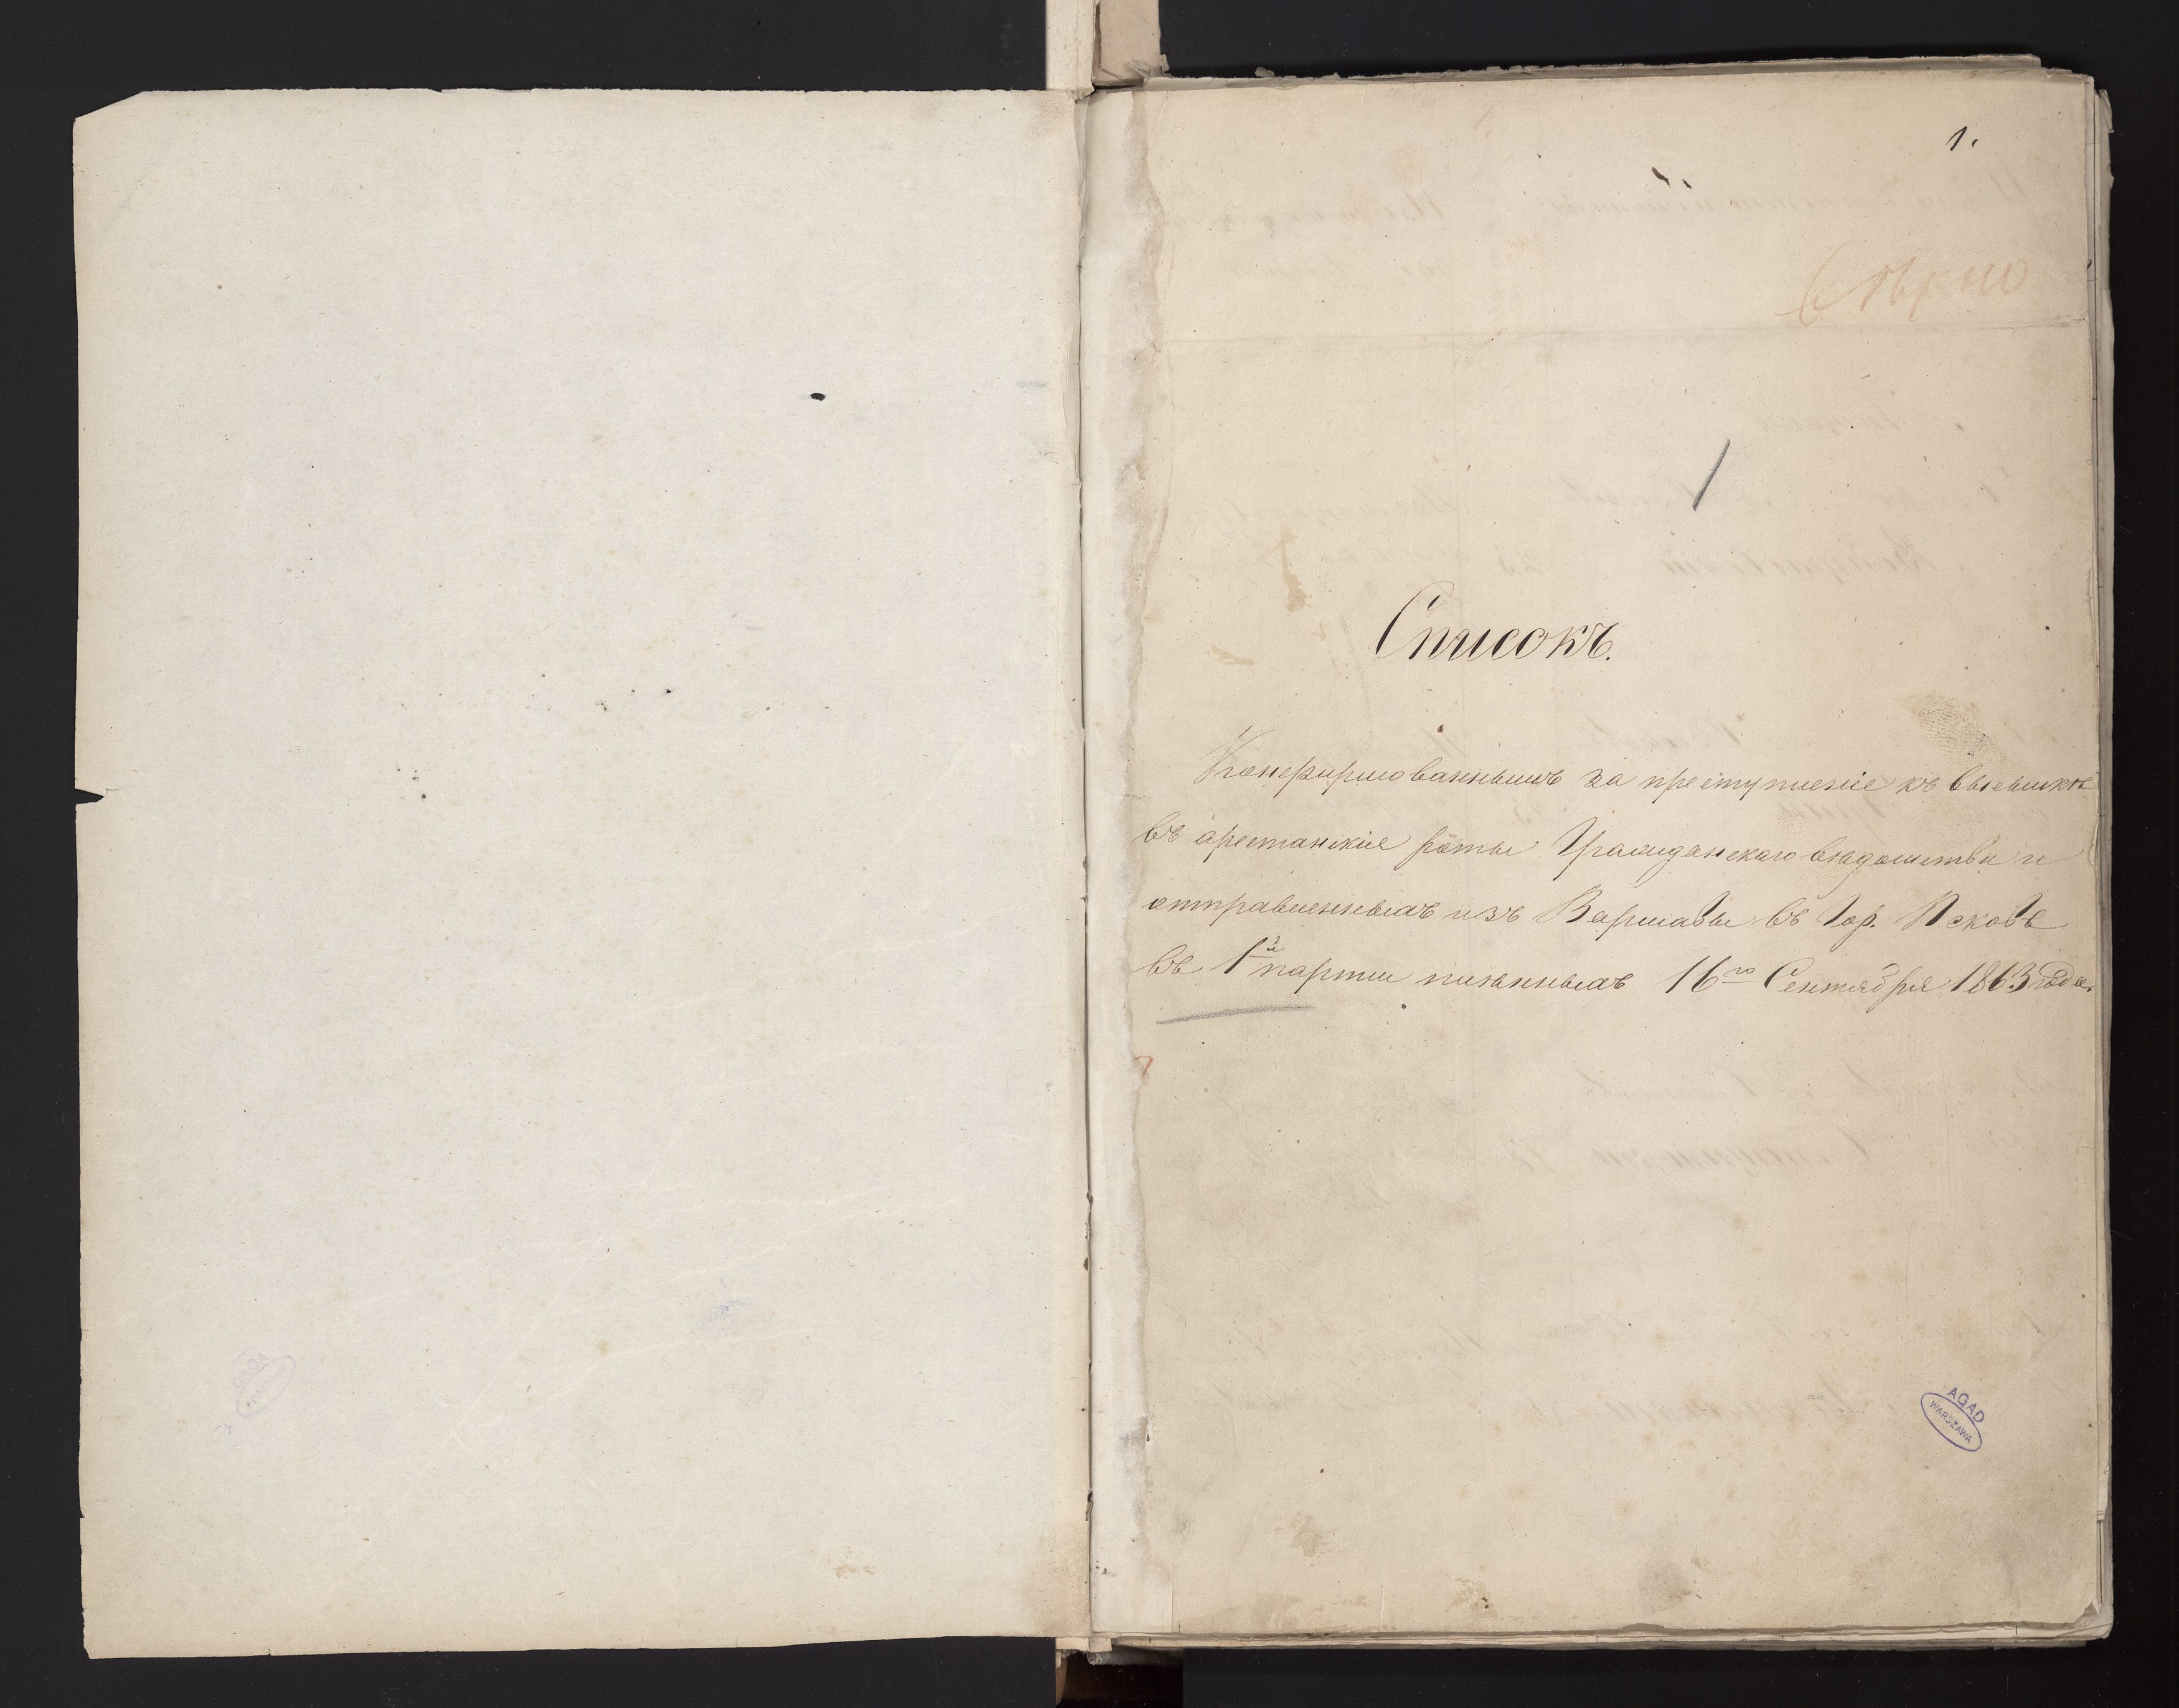 1.
Вѣрно
1
Списокъ.
Конфирмованнымъ за преступленіе къ высылкѣ
въ арестанскіе роты Гражданскаго вѣдомства и
отправленныхъ изъ Варшавы въ Гор. Псковъ
въ 1й партіи плѣнныхъ 16го Сентября 1863 года.
AGAD
WARSZAWA